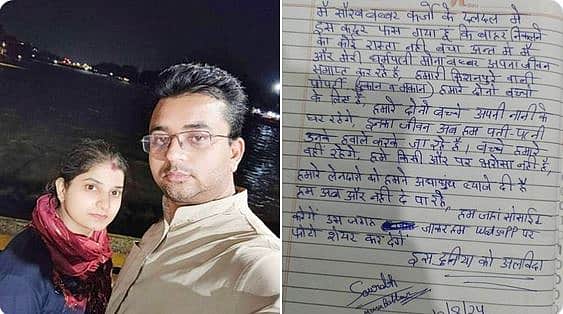 मैं सौरव बब्बर कर्जो के दलदल मे
इस कदर फस गया हूं कि बाहर निकलने
का कोई रास्ता नही बचा अन्त मे मैं
और मेरी धर्मपत्नी मोना बब्बर अपना जीवन
समाप्त कर रहे है. हमारी किशनपुरे वाली
प्रोपर्टी (दुकान व मकान) हमारे दोनो बच्चो
के लिए है. हमारे दोनो बच्चे अपनी नानी के
घर रहेंगे. इनका जीवन अब हम पती-पत्नी
उनके हवाले करके जा रहे है। बच्चे हमारे
वही रहेंगे. हमे किसी और पर भरोसा नही है.
हमारे लेनदारो को हमने अंधाधुंध ब्याज दी है
हम अब और नही दे पा रहे.
हम जहां सोसाईट
करेंगे उस जगह जाकर हम WhatsApp पर
फोटो शेयर कर देंगे.
इस दुनिया को अलविदा
Saurabh
/8/24